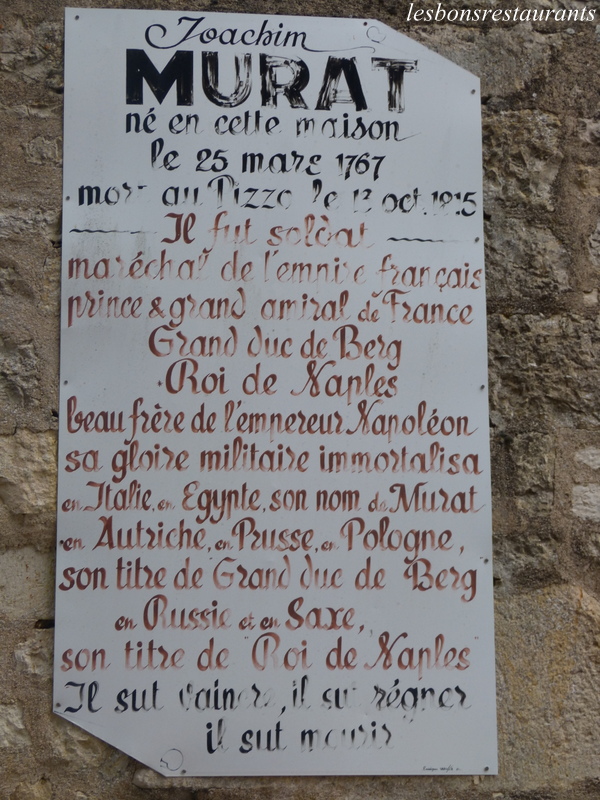 lesbonsrestaurants
Joachim
MURAT
né en cette maison
le 25 mars 1767
mort au Pizzo le 13 oct. 1815
Il fut soldat
maréchal de l'empire français
prince & grand amiral de France
Grand duc de Berg
Roi de Naples
beau frère de l'empereur Napoléon
sa gloire militaire immortalisa
en Italie, en Egypte, son nom de Murat
en Autriche, en Prusse, en Pologne,
son titre de Grand duc de Berg
en Russie et en Saxe,
son titre de "Roi de Naples"
Il sut vaincre, il sut régner
il sut mourir